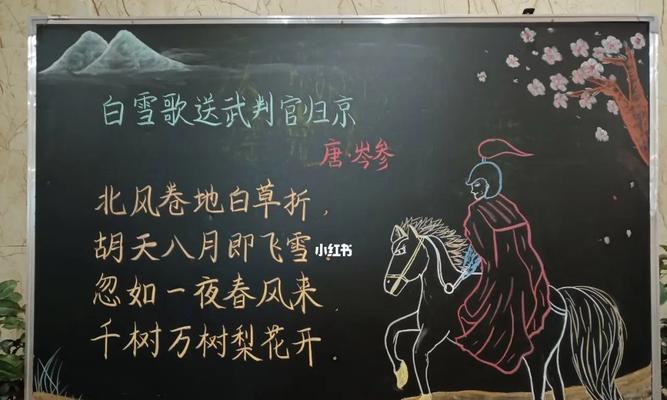 白雪歌送武判官归京
唐·岑参
北风卷地白草折，
胡天八月即飞雪．
小红书
忽如一夜春风来
千树万树梨花开．